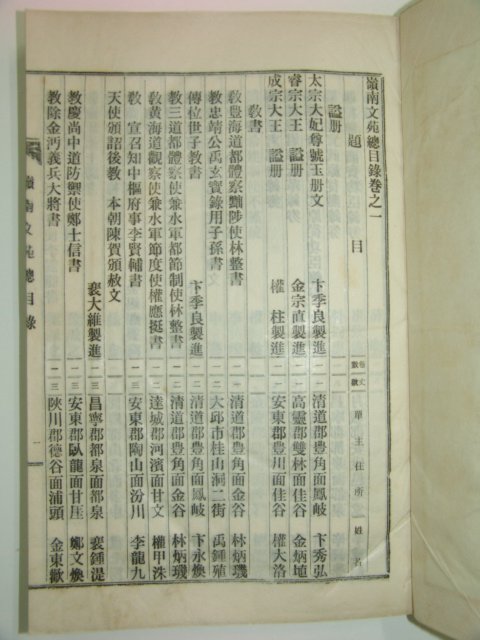 嶺南文苑總目錄卷之一
題 目 卷次 張數 單主住所 姓名
諡册
太宗大妃尊號玉册文 卞季良製進 一 一 清道郡豊角面鳳岐 卞秀弘
睿宗大王 諡册 金宗直製進 一 一 高靈郡雙林面佳谷 金炳埴
成宗大王 諡册 權 柱製進 一 二 安東郡豊川面佳谷 權大洛
教書
教豊海道都體察黜陟使林整書 一 二 清道郡豊角面金谷 林炳璣
教忠靖公禹玄寶錄用子孫書 一 二 大邱市桂山洞二街 禹鍾殖
傳位世子教書 卞季良製進 一 二 清道郡豊角面鳳岐 卞永煥
教三道都體察使兼水軍都節制使林整書 一 二 清道郡豊角面金谷 林炳璣
教黃海道觀察使兼水軍節度使權應挺書 一 二 達城郡河濱面甘文 權甲洙
教 宣召知中樞府事李賢輔書 一 三 安東郡陶山面汾川 李龍九
天使頒詔後教 本朝陳賀頒赦文 裴大維製進 一 三 昌寧郡都泉面都泉 裴鍾湜
教慶尚中道防禦使鄭士信書 一 三 安東郡臥龍面甘厓 鄭文煥
教除金沔義兵大將書 一 三 陜川郡德谷面浦頭 金東歡
嶺南文苑總目錄 一